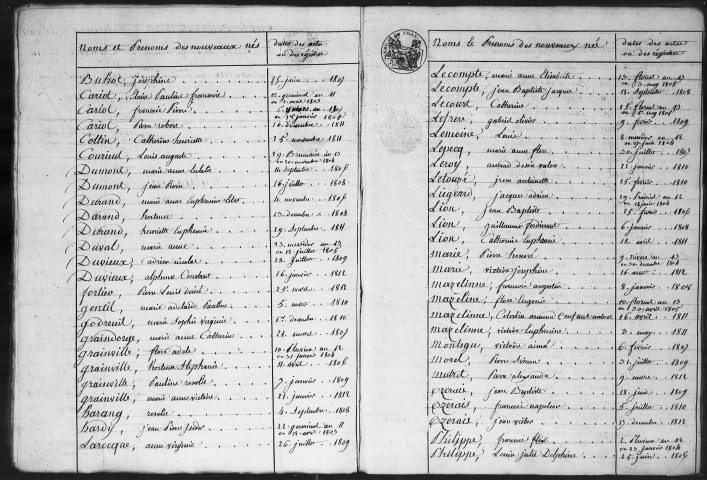 Noms et Prénoms des nouveaux nés
dates des actes
ou des régistres
Buhot, Joséphine 25 juin 1807
Cariol, Claire Pauline françoise 12 germinal an 11
ou 2 avril 1803
Cariol, françois Pierre
ou 1er janvier 1805
Cariol, Pierre robert 10 décembre 1811
Cottin, Catherine henriette 25 novembre 1811
Courieul, Louis auguste 29 Brumaire an 12
Dumont, marie anne 11 septembre 1808
Dumont, jean Pierre 16 juillet 1808
Durand, marie anne Euphrosine 4 novembre 1806
Durand, hortense 23 décembre 1808
Durand, henriette Euphemie 29 Septembre 1811
Duval, marie anne 23 messidor an 13
ou 12 juillet 1805
Duvieux, adrien nicolas 28 juillet 1809
Duvieux, alphonse Constant 16 janvier 1812
fortier, Pierre Louis désiré 25 mars 1812
gentil, marie adelaide Pauline 5 mars 1810
godreuil, marie Sophie virginie 17 décembre 1810
graindorge, marie anne Catherine 24 mars 1807
grainville, flore adèle 10 Pluviose an 12
ou 31 janvier 1804
grainville, hortense Stéphanie 11 avril 1806
grainville, Pauline rosalie 7 janvier 1809
grainville, marie anne victoire 21 janvier 1812
harang, rosalie 4 Septembre 1808
hardy, jean Pierre Isidor 22 germinal an 11
ou 12 avril 1803
Larocque, anne virginie 26 juillet 1809
Noms et Prénoms des nouveaux nés
dates des actes
ou des régistres
Lecompte, marie anne Elisabeth 13 floréal an 13
ou 3 may 1805
Lecompte, jean Baptiste jacques 12 Septembre 1808
Lecourt, Catherine 15 floréal an 13
ou 5 may 1805
Lefevre, gabriel olivier 9 février 1809
Lemoine, Louis 8 messidor an 12
ou 27 juin 1804
Lepecq, marie anne flore 30 juillet 1807
Leroy, amand désiré valere 22 janvier 1810
Letouzé, irène antoinette 25 février 1810
Liégeard, jacques adrien 29 Prairial an 12
ou 18 juin 1804
Lion, jean Baptiste 25 février 1806
Lion, guillaume ferdinand 6 janvier 1808
Lion, Catherine Euphrasie 18 avril 1811
marie, Pierre honoré 9 nivose an 13
ou 30 décembre 1804
marie, victoire joséphine 16 mars 1812
mazelinne, françois augustin 8 janvier 1806
mazeline, flore Eugénie 10 floréal an 13
ou 30 avril 1805
mazelinne, Celestin armand Constant 16 avril 1811
mazelinne, victoire Euphrosine 2 may 1811
montégu, victoire aimé 6 février 1807
morel, Pierre Simon 31 juillet 1809
mutrel, Pierre alexandre 9 mars 1812
ozerais, jean Baptiste 18 juin 1809
ozerais, françois napoléon 5 juillet 1810
ozerais, jean victor 17 décembre 1812
Philippe, françois felix 2 Pluviose an 12
ou 23 janvier 1804
Philippe, Louise julie Delphine 25 juin 1805